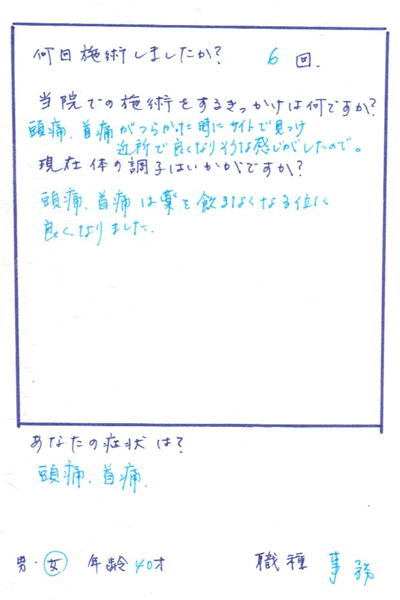 何回施術しましたか? 6 回.
当院での施術をするきっかけは何ですか?
頭痛、首痛がつらかった時にサイトで見つけ
近所で良くなりそうな感じがしたので。
現在体の調子はいかがですか?
頭痛、首痛は薬を飲まなくなる位に
良くなりました.
あなたの症状は?
頭痛、首痛.
男・女 年齢 40才 職種 事務